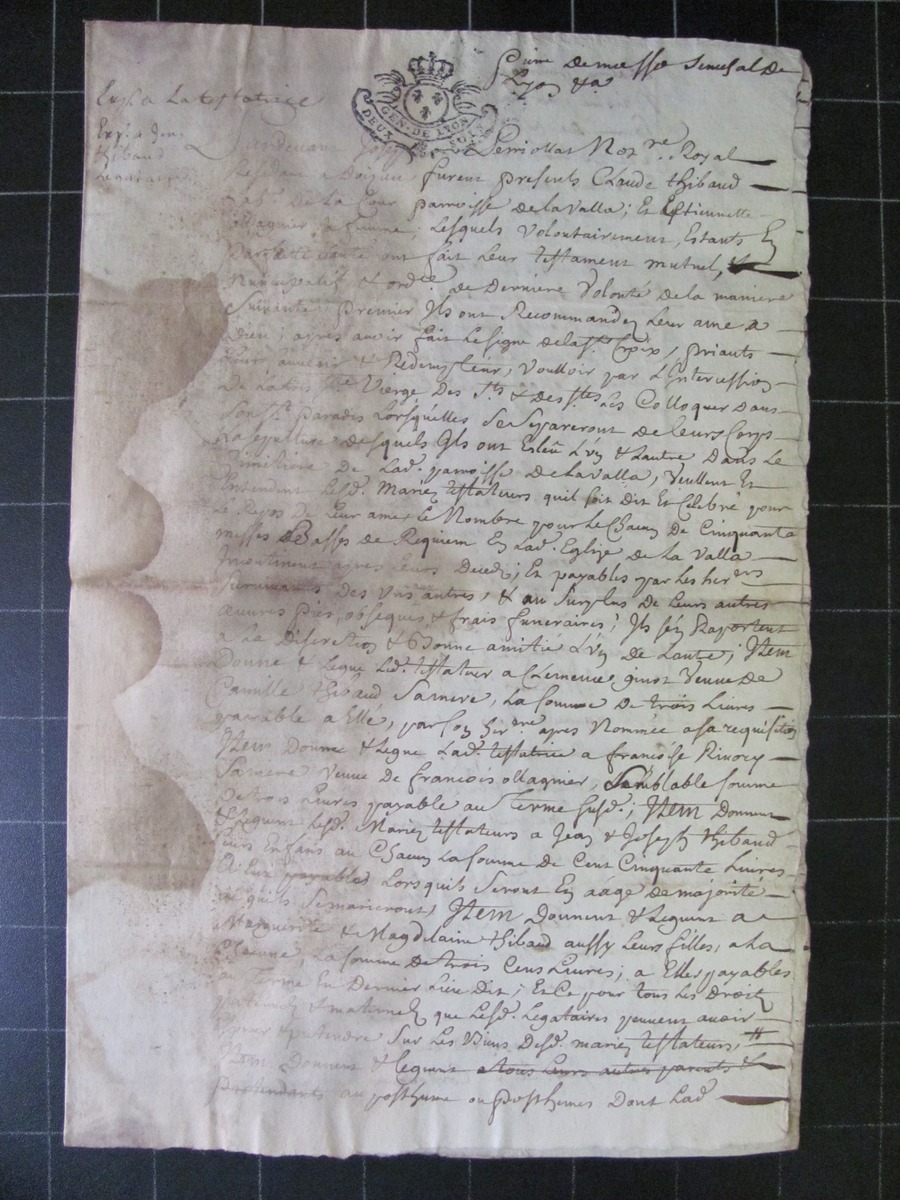 DEUX SOLS
GEN. DE LYON
Exp. a La testatrice
Exp. a Jean
thibaud
Legataire
Pardevant
Perriollat Not.re Royal
furent presents Claude thibaud
de La Cour parroisse de la Valla; Et Estiennette
ollagnier, sa femme; Lesquels Volontairement, Estants En
parfaite Santé ont fait Leur testament mutuel,
Nuncupatif & ord.re de Derniere Volonté de la maniere
Suivante, premier Ils ont Recommandez Leur ame a
Dieu; apres avoir fait Le signe de la S.te Croix, priants
Leur & Redempteur, Voulloir par L'Intercession
De La Vierge Des S.ts & des S.tes Les Colloquer Dans
Son S.t paradis Lorsquelles Se Separeront de Leurs Corps
La sepulture desquels Ils ont Esleu L'un & Lautre Dans Le
Cimitiere De Lad. parroisse De La Valla, Veullent Et
Entendent Lesd. Mariez testateurs, quil soit Dit Et Celebré pour
Le Repos De Leur ame Le Nombre pour Le Chacun De Cinquante
messes Basses de Requiem En Lad. Eglise de La Valla
Incontinent apres Leurs Decedz; Et payables par Les her.ers
Survivants Des Uns autres, & au Surplus De Leurs autres
œuvres pies, obseques, & frais funeraires; Ils s'en Raportent
a La Discretion & Bonne amitié L'un De Lautre; Item
Donne & Legue Led. testateur a Clemence ginot Veuve De
Camille thibaud Sa mere, La Somme De trois Livres
payable a Elle, par son her.re apres Nommée a Sa requisition
Item Donne & Legue Lad. testatrice a francoise
Sa mere Veuve De francois ollagnier, Semblable Somme
De trois Livres payable au Terme susd.; Item Donnent
& Leguent Lesd. Mariez testateurs a Jean & Joseph thibaud
Leurs Enfans au Chacun La somme De Cent Cinquante Livres
a Eux payables Lorsquils Seront En aage de majorité
ou quils Se marieront, Item Donnent & Leguent a
Marguerite & Magdelaine thibaud aussy Leurs filles, a La
Chacune, La somme De trois Cens Livres; a Elles payables
au Terme En Dernier Lieu Dit; Et Ce pour tous Les Droits
paternels & maternels que Lesd. Legataires peuvent avoir
& pretendre Sur Les Biens Desd. mariez testateurs,
Item Donnent & Leguent a tous Leurs autres parents &
pretendants au posthume ou posthumes Dont Lad